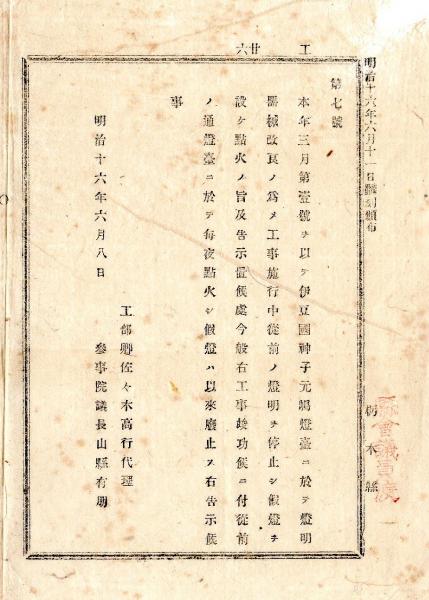 明治十六年六月十一日飜刻頒布
栃木縣
工　廿六
第七號
本年三月第壹號ヲ以テ伊豆國神子元嶋燈臺ニ於テ燈明
器械改良ノ爲メ工事施行中從前ノ燈明ヲ停止シ假燈ヲ
設ケ點火ノ旨及告示置候處今般右工事竣功候ニ付從前
ノ通燈臺ニ於テ每夜點火シ假燈ハ以來廢止ス右告示候
事
明治十六年六月八日
工部卿佐々木高行代理
參事院議長山縣有朋